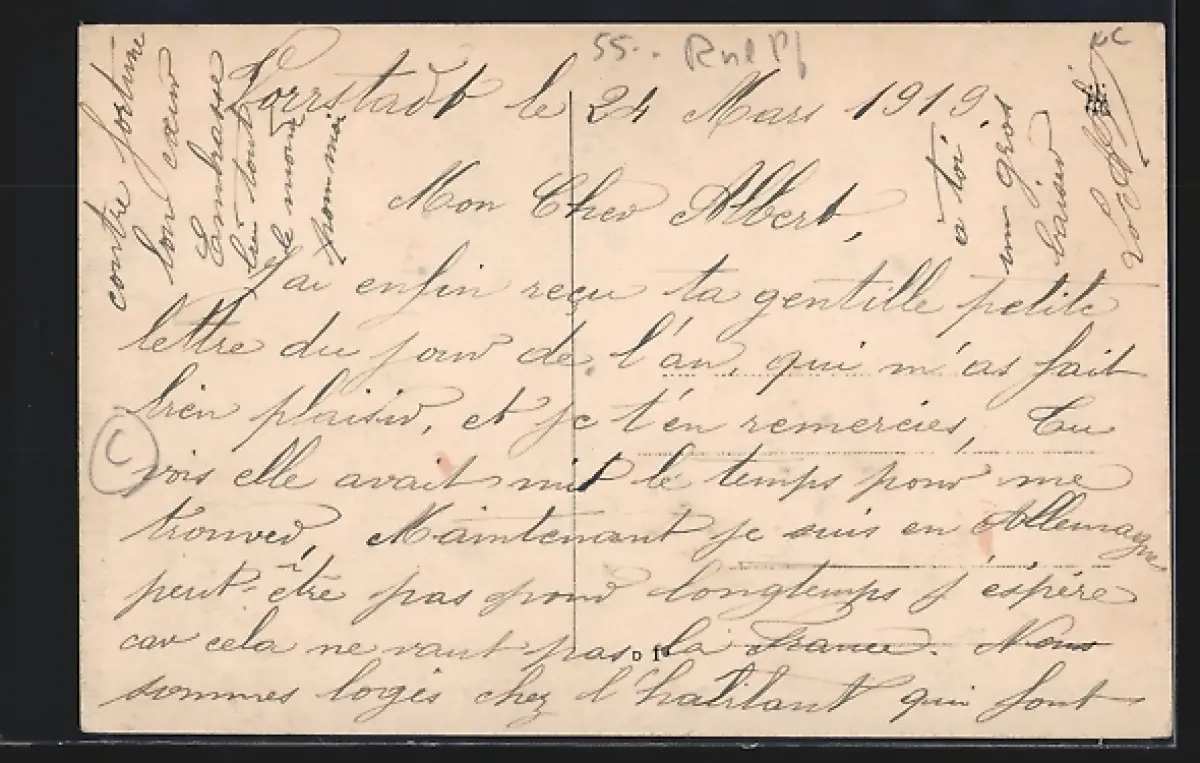 55.-
Lorrstadt le 24 Mars 1919.
Mon Cher Albert,
J'ai enfin reçu ta gentille petite
lettre du jour de l'an, qui m'as fait
bien plaisir, et je t'en remercies, Tu
vois elle avait mit le temps pour me
trouver, Maintenant je suis en Allemagne
peut-être pas pour longtemps j'espère
car cela ne vaut pas la France. Nous
sommes logés chez l'habitant qui font
contre fortune
bon cœur
Embrasse
bien tout
le monde
pour moi
à toi
un gros
baiser